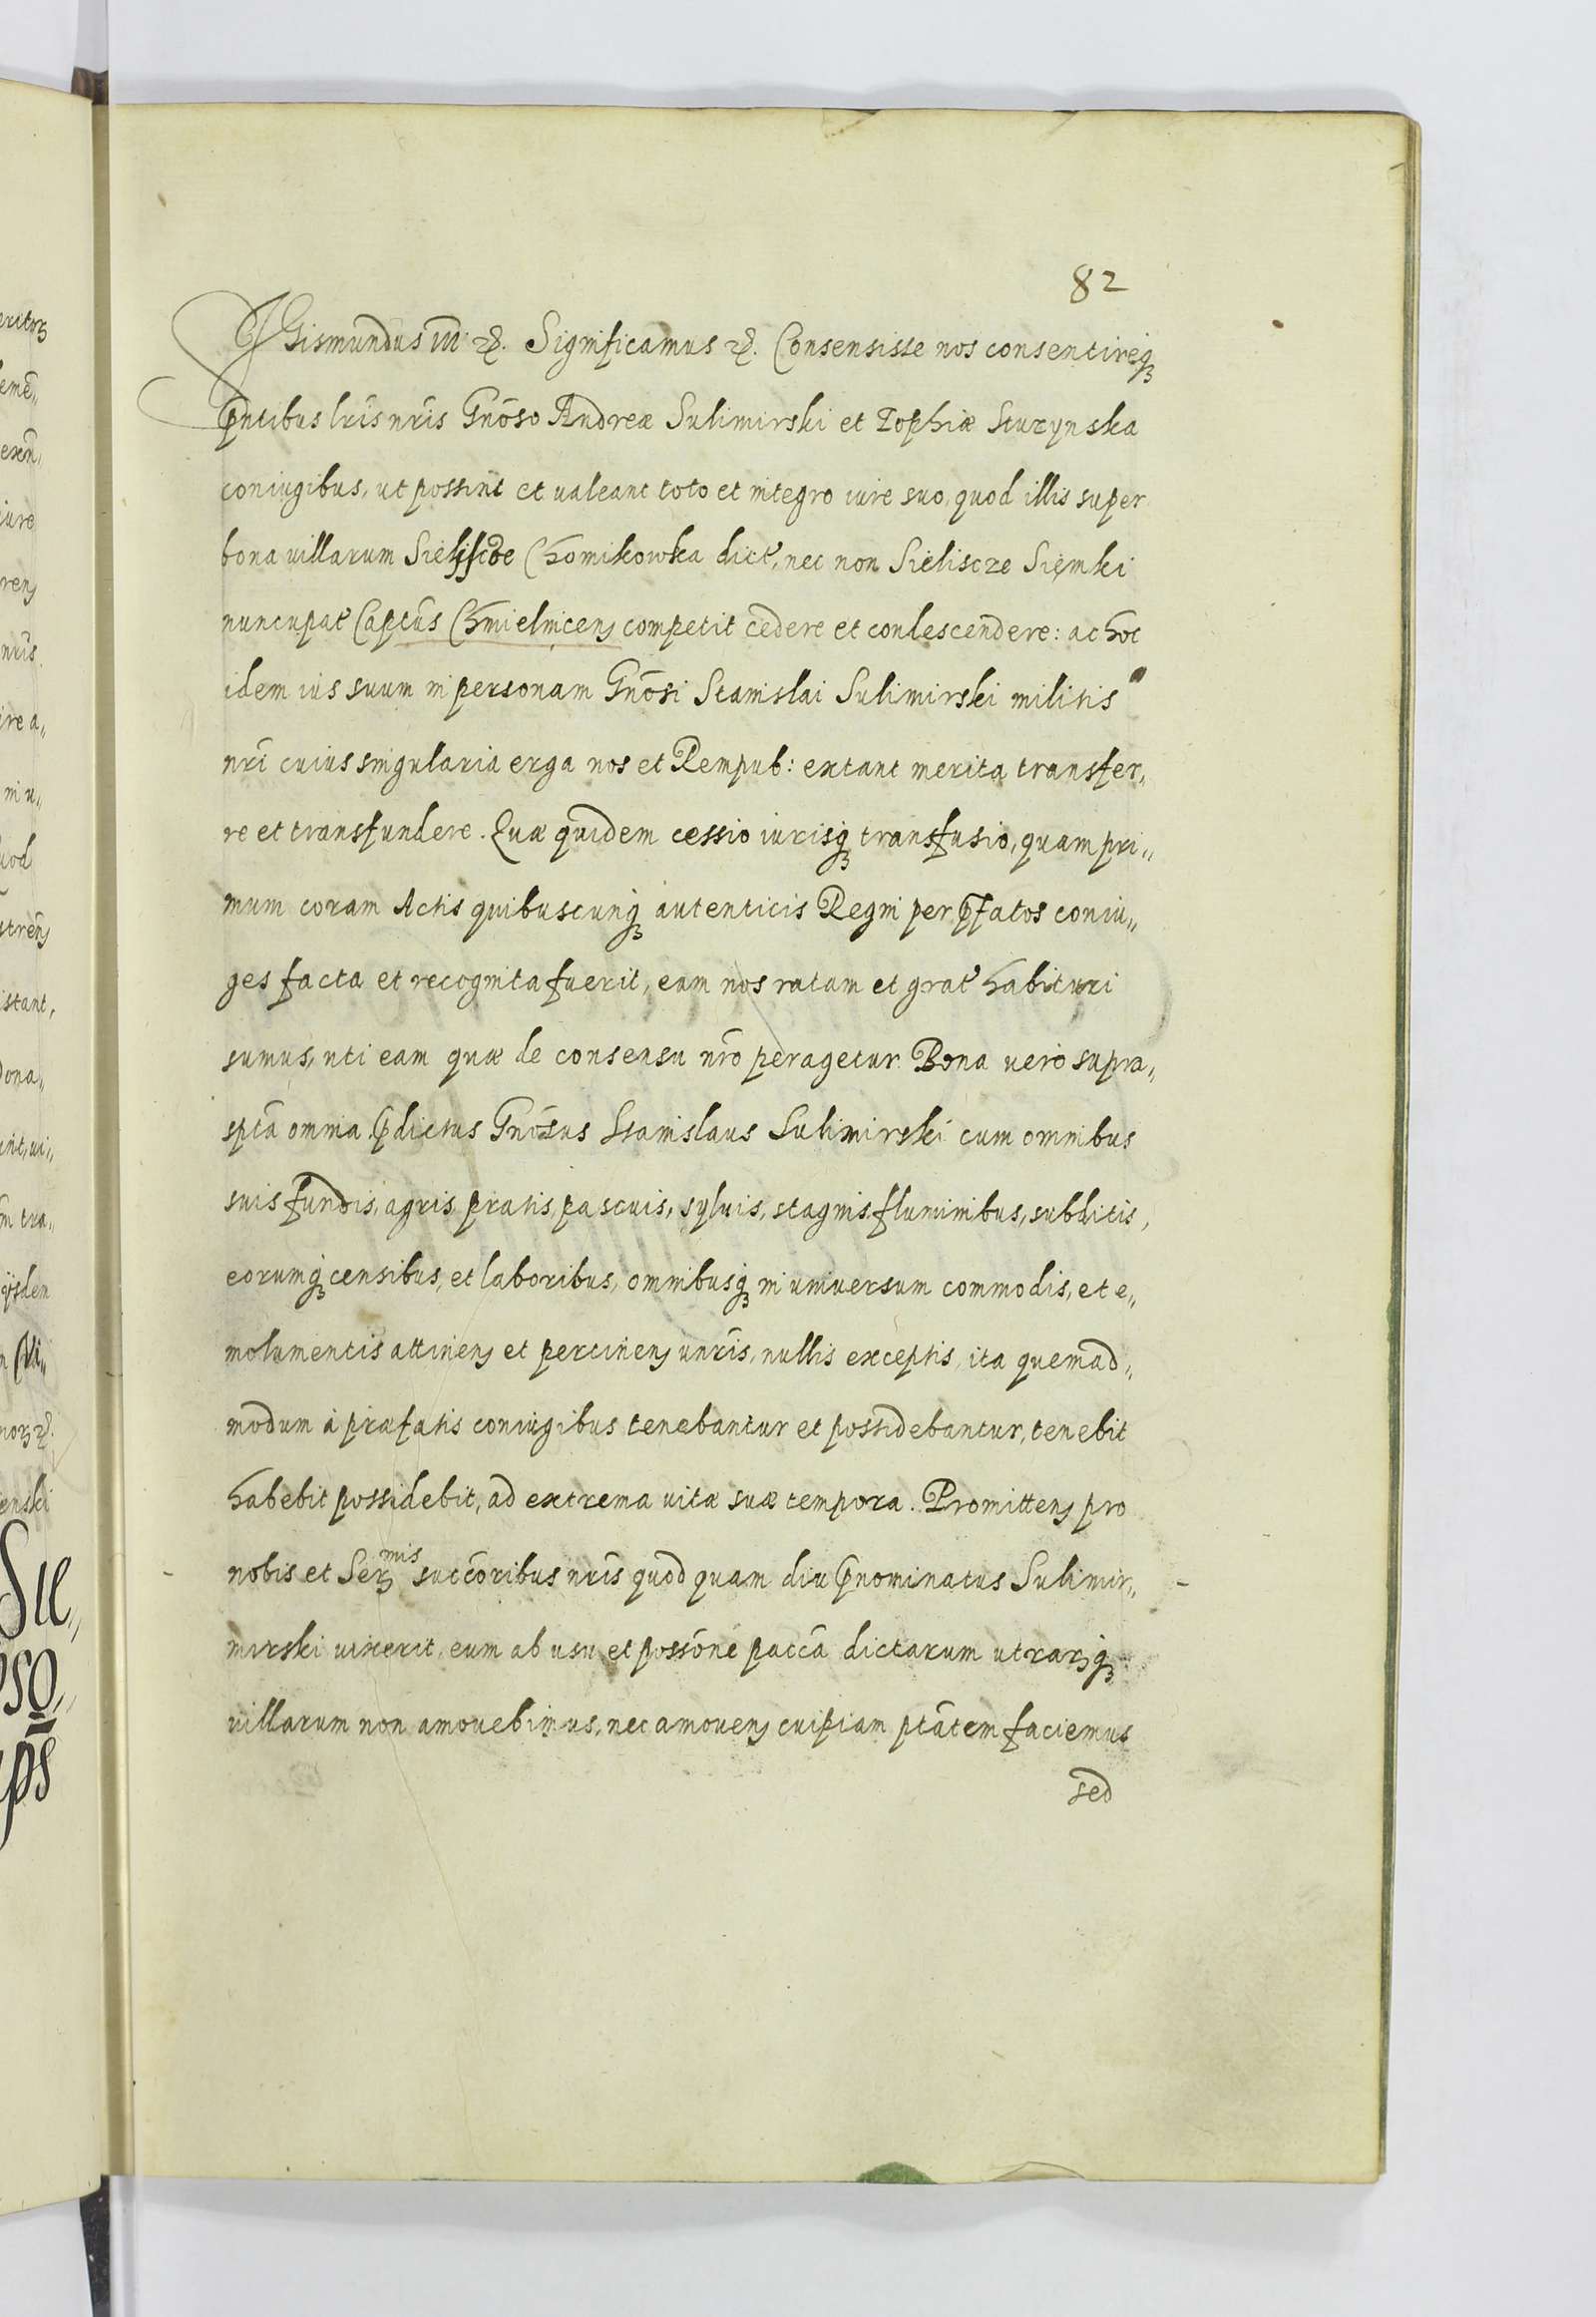 82
SIGismundus III etc. Significamus etc. Consensisse nos consentireq₃
p̃ntibus lr̃is nr̃is Gn̄oso Andreæ Sulimirski et Zophiæ Sturzynska
coniugibus, ut possint et ualeant toto et integro iure suo, quod illis super
bona uillarum Chomikowka dict̃, nec non Sieliscze Siemki
nuncupat̃ Captũs Chmielnicen̄ competit cedere et condescendere: ac hoc
idem ius suum in personam Gn̄osi Stanislai Sulimirski militis
nr̃i cuius singularia erga nos et Rempub: extant merita transfer„
re et transfundere. Quæ quidem cessio iurisq₃ transfusio, quam pri„
mum coram Actis quibuscunq₃ autenticis Regni per p̃fatos coniu„
ges facta et recognita fuerit, eam nos ratam et grat̃ habituri
sumus, uti eam quæ de consensu nr̃o peragetur. Bona uero supra„
sp̃ta omnia, p̃dictus Gn̄osus Stanislaus Sulimirski cum omnibus
suis fundis, agris, pratis, pascuis, syluis, stagnis, fluminibus, subditis,
eorumq₃ censibus, et laboribus, omnibusq₃ in uniuersum commodis, et e„
molumentis attinen̄ et pertinen̄ unr̃is, nullis exceptis, ita quemad„
modum à præfatis coniugibus tenebantur et possidebantur, tenebit
habebit possidebit, ad extrema uitæ suæ tempora. Promitten̄ pro
nobis et Ser₃mis succ̃oribus nr̃is quod quam diu p̃nominatus Sulimir„
mirski uixerit, eum ab usu et poss̃one pacc̃a dictarum utrar₃q₃
uillarum non amouebimus, nec amouen̄ cuipiam ptãtem faciemus
sed